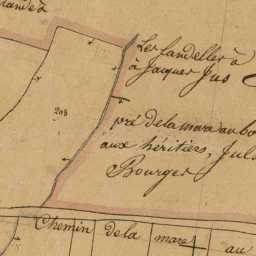 Les Landelles à
à Jacques Jus
pré de la mare au bo
aux héritiers, Juls
Bourges
Chemin de la mare au